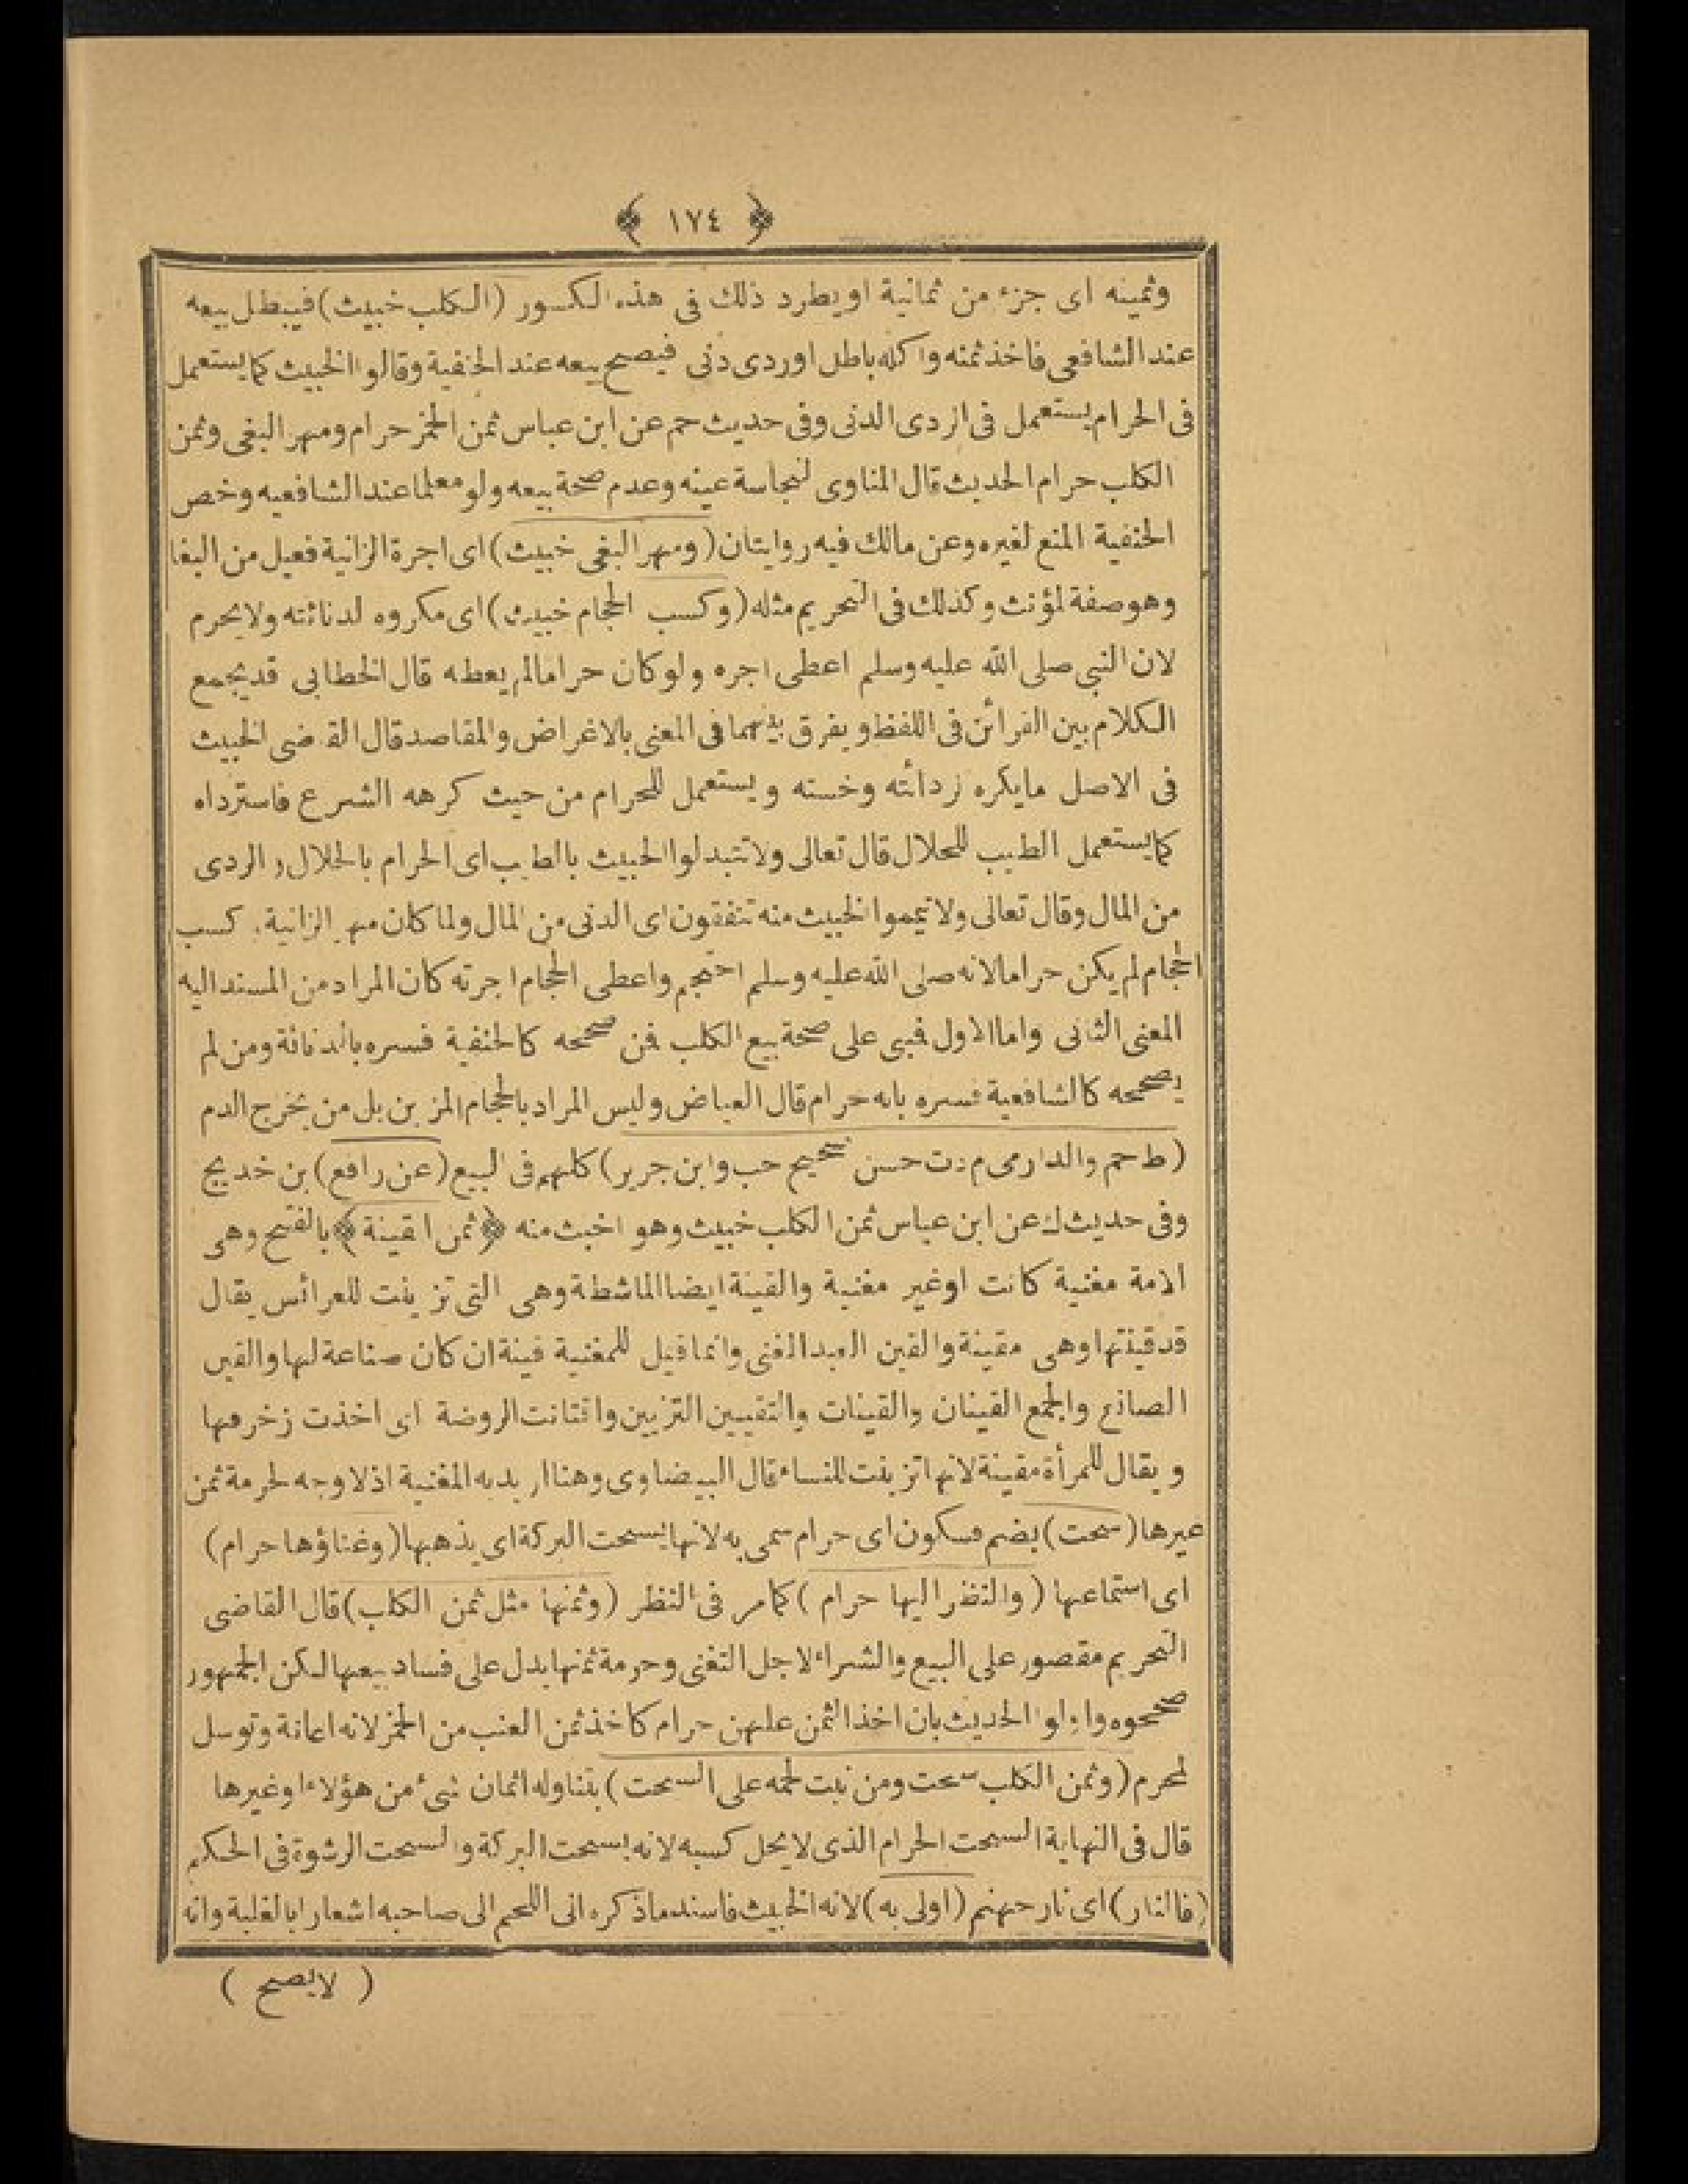 ﴿ ١٧٤ ﴾
وثمينه اى جزء من ثمانية او يطرد ذلك فى هذه الكسور (الكلب خبيث) فيبطل بيعه
عند الشافعى فاخذ ثمنه واكله باطل اوردى دنى فيصح بيعه عند الحنفية وقالوا الخبيث كما يستعمل
فى الحرام يستعمل فى الردى الدنى وفى حديث حم عن ابن عباس ثمن الخمر حرام ومهر البغى وثمن
الكلب حرام الحديث قال المناوى لنجاسة عينه وعدم صحة بيعه ولو معلما عند الشافعيه وخص
الحنفية المنع لغيره وعن مالك فيه روايتان (ومهر البغى خبيث) اى اجرة الزانية فعيل من البغا
وهو صفة لمؤنث وكذلك فى التحريم مثله (وكسب الحجام خبيث) اى مكروه لدنائته ولا يحرم
لان النبى صلى الله عليه وسلم اعطى اجره ولو كان حراما لم يعطه قال الخطابى قد يجمع
الكلام بين القرائن فى اللفظ ويفرق بينهما فى المعنى بالاغراض والمقاصد قال القاضى الخبيث
فى الاصل مايكره زدائته وخسته ويستعمل للحرام من حيث كرهه الشرع فاسترذاه
كما يستعمل الطيب للحلال قال تعالى ولا تتبدلوا الخبيث بالطيب اى الحرام بالحلال والردى
من المال وقال تعالى ولا تيمموا الخبيث منه تنفقون اى الدنى من المال ولما كان مهر الزانية. كسب
الحجام لم يكن حراما لانه صلى الله عليه وسلم احتجم واعطى الحجام اجرته كان المراد من المسند اليه
المعنى الثانى واما الاول فبنى على صحة بيع الكلب فمن صححه كالحنفية فسره بالدنائة ومن لم
يصححه كالشافعية فسره بانه حرام قال العياض وليس المراد بالحجام المزين بل من يخرج الدم
(ط حم والدارمى م د ت حسن صحيح حب وابن جرير) كلهم فى البيع (عن رافع) بن خديج
وفى حديث ك عن ابن عباس ثمن الكلب خبيث وهو اخبث منه ﴿ثمن القينة﴾ بالفتح وهى
الامة مغنية كانت اوغير مغنية والقينة ايضا الماشطة وهى التى تزينت للعرائس يقال
قد قينتها وهى مقينة والقين العبد المغنى وانما قيل للمغنية قينة ان كان صناعة لها والقين
الصانع والجمع القينان والقينات والتقيين التزيين واقتانت الروضة اى اخذت زخرفها
ويقال للمرأة مقينة لانها تزينت للنساء قال البيضاوى وهنا اريد به المغنية اذ لا وجه لحرمة ثمن
غيرها (سحت) بضم فسكون اى حرام سمى به لانها يسحت البركة اى يذهبها (وغناؤها حرام)
اى استماعها (والنظر اليها حرام) كما مر فى النظر (وثمنها مثل ثمن الكلب) قال القاضى
التحريم مقصور على البيع والشراء لاجل التغنى وحرمة ثمنها يدل على فساد بيعها لكن الجمهور
صححوه واولوا الحديث بان اخذ الثمن عليهن حرام كاخذ ثمن العنب من الخمر لانه اعانة وتوسل
لمحرم (وثمن الكلب سحت ومن نبت لحمه على السحت) بتناوله اثمان شئ من هؤلاء اوغيرها
قال فى النهاية السحت الحرام الذى لا يحل كسبه لانه يسحت البركة والسحت الرشوة فى الحكم
(فالنار) اى نار جهنم (اولى به) لانه الخبيث فاسند ماذكره الى اللحم الى صاحبه اشعارا بالغلبة وانه
( لا يصح )